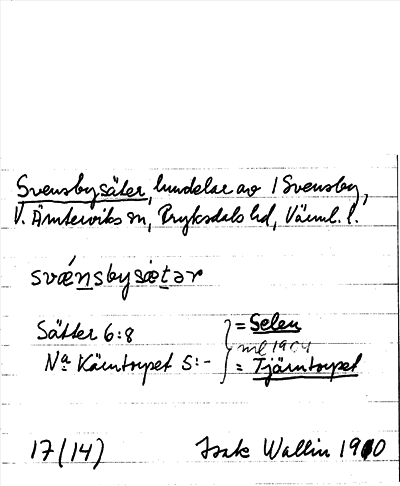 Svensbysäter, hundelar av 1 Svensby,
V. Ämterviks sn, Fryksdals hd, Värml. l.
svǽnsbysætər
Sätter 6:8 = Selen
ml 1904
Nª Kärntorpet 5:- = Tjärntorpet
17(14) Isak Wallin 1910